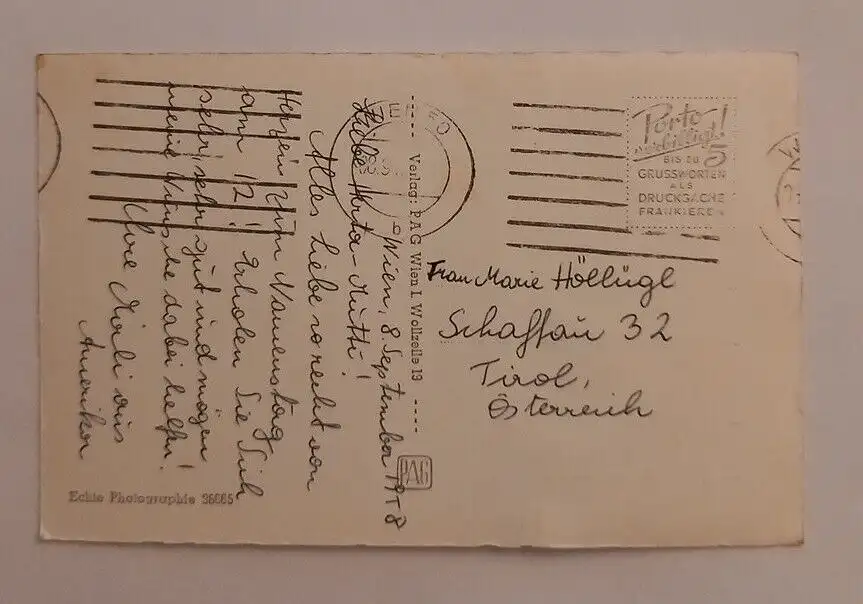 Wien, 8. September 1958
Liebe Herta-Mutti!
Alles Liebe so recht von
Herzen zum Namenstag
am 12. Erholen Sie Sich
sehr, sehr gut und mögen
meine Wünsche dabei helfen!
Ihre aus
Amerika
Verlag: PAG Wien I, Wollzeile 19
PAG
Echte Photographie 36665
Porto
verbilligt!
BIS ZU 5
GRUSSWORTEN
ALS
DRUCKSACHE
FRANKIEREN
Frau Marie Höllügl
Schaftau 32
Tirol,
Österreich